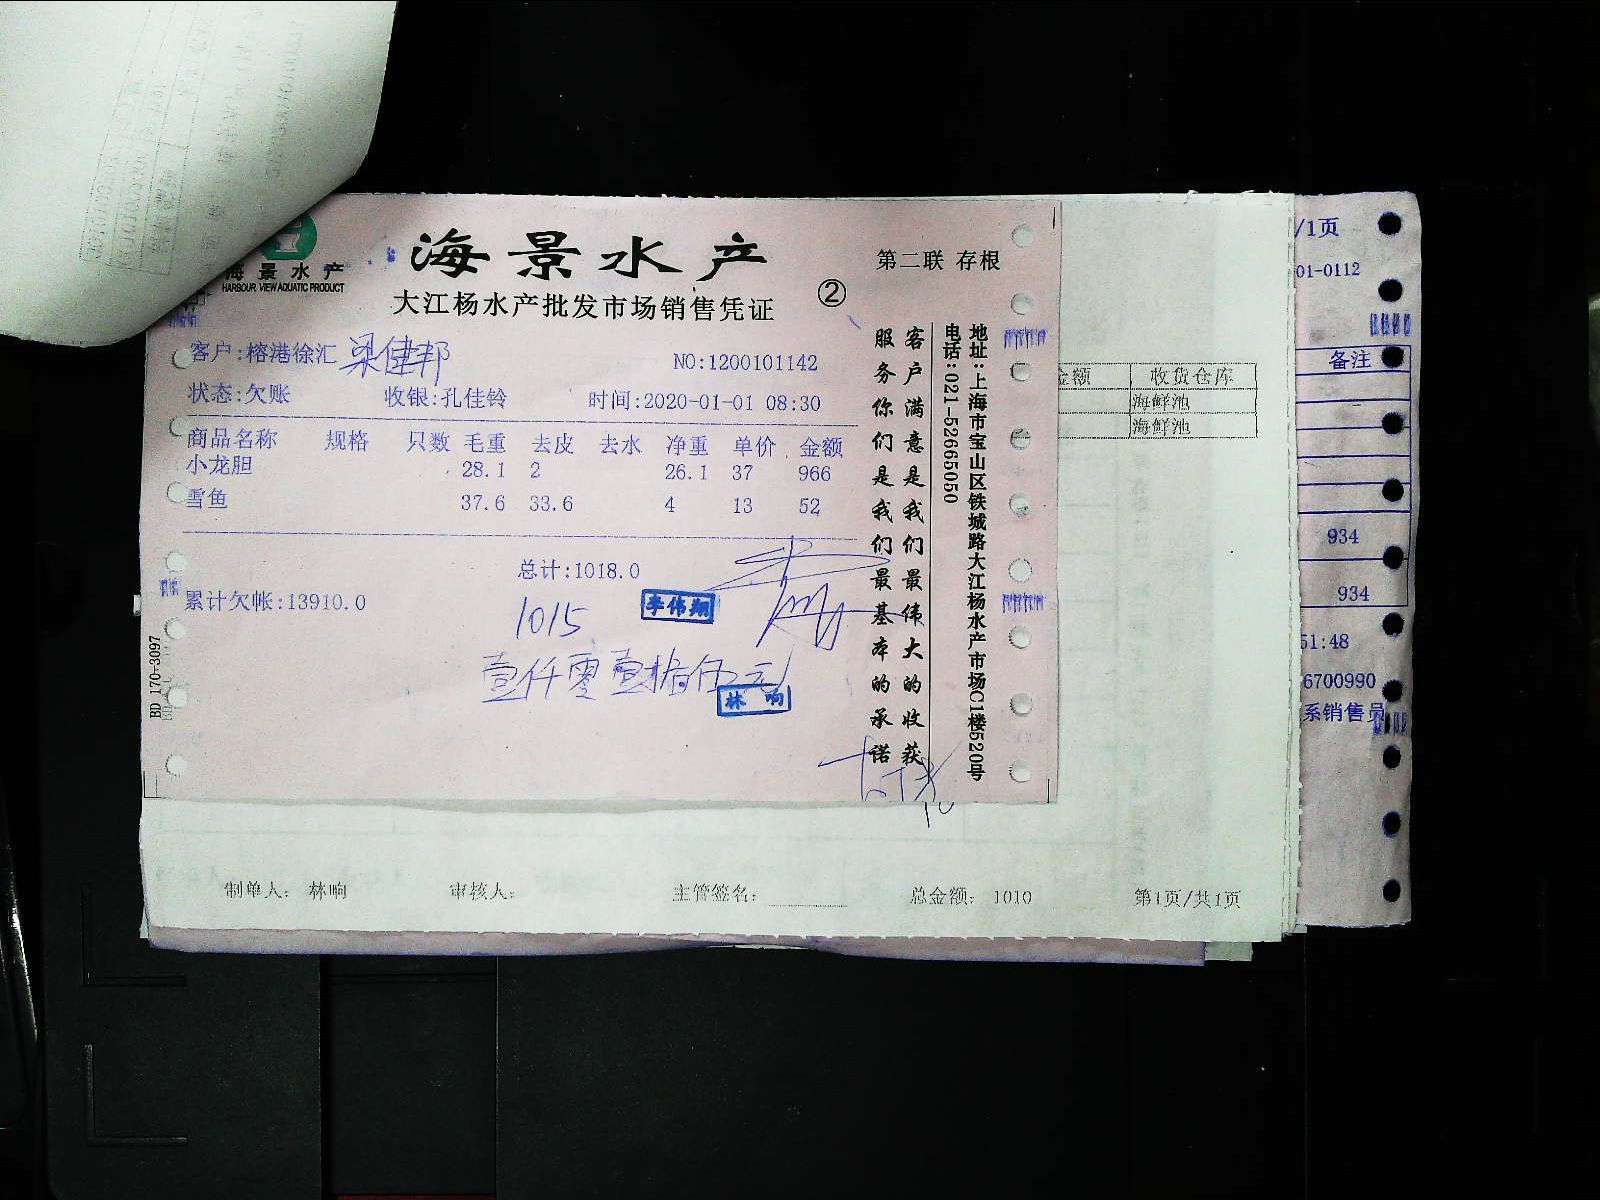 海景水产
HARBOUR VIEW AQUATIC PRODUCT
海景水产
大江杨水产批发市场销售凭证
②
第二联 存根
客户:榕港徐汇 梁健邦
NO:1200101142
状态:欠账 收银:孔佳铃 时间:2020-01-01 08:30
商品名称 规格 只数 毛重 去皮 去水 净重 单价 金额
小龙胆 28.1 2 26.1 37 966
雪鱼 37.6 33.6 4 13 52
总计:1018.0
累计欠帐:13910.0
李伟翔
1015
壹仟零壹拾伍元
林响
BD 170-3097
客户满意是我们最伟大的收获
服务你们是我们最基本的承诺
地址:上海市宝山区铁城路大江杨水产市场C1楼520号
电话:021-52665050
金额 收货仓库
海鲜池
海鲜池
制单人: 林响 审核人: 主管签名: 总金额: 1010 第1页/共1页
/1页
01-0112
备注
934
934
51:48
6700990
系销售员